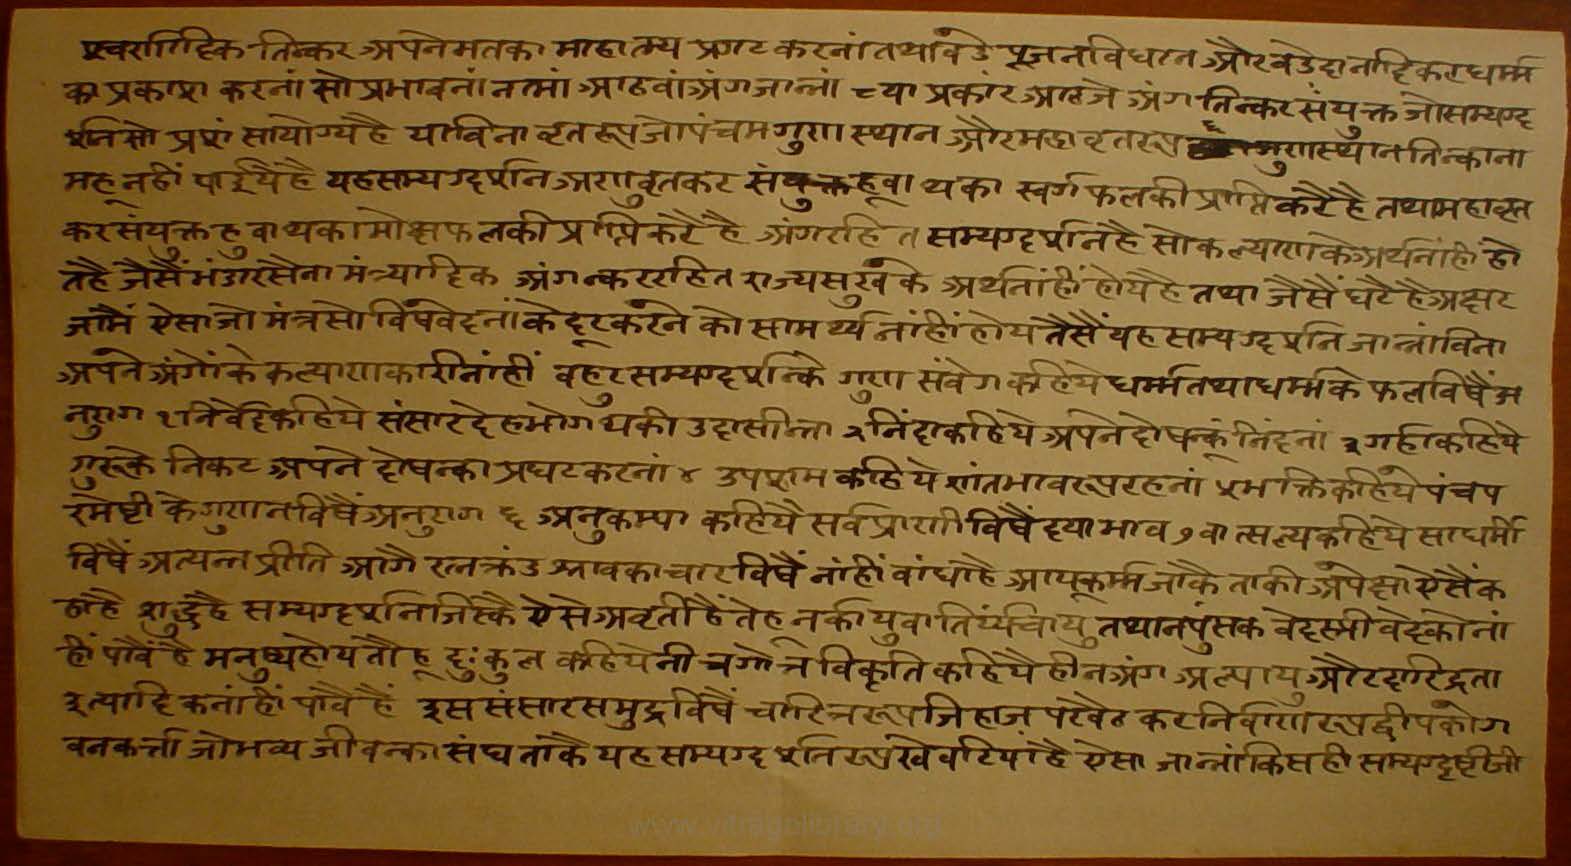 प्रस्वरागादिक तिन्कर अपने मतका माहात्म्य प्रगट करनां तथा वडे पूजन विधान और वडे दानादि कर धर्म्म
का प्रकाश करनां सो प्रभावनां नामां आठवां अंग जान्नां ८ या प्रकार आठ जे अंग तिन्कर संयुक्त जो सम्यग्द
र्शन सो प्रशंसा योग्य है या विना वृत रूप जो पंचम गुणस्थान और महावृत रूप गुणस्थान तिन्का ना
महू नहीं पाईये है यह सम्यग्दर्शन अणुवृत कर संयुक्त हूवा थका स्वर्ग फल की प्राप्ति करै है तथा महावृत
कर संयुक्त हुवा थका मोक्ष फल की प्राप्ति करै है अंग रहित सम्यग्दर्शन है सो कल्याण के अर्थ नांहीं हो
त है जैसैं भंडार सैना मंत्र्यादिक अंगन्कर रहित राज्य सुख के अर्थ नांहीं होय है तथा जैसैं घटै है अक्षर
जामैं ऐसा जो मंत्र सो विष वेदनां के दूर करने को सामर्थ्य नांहीं होय तैसैं यह सम्यग्दर्शन जान्नां विना
अपने अंगों के कल्याणकारी नांहीं वहुर सम्यग्दर्शन्के गुण संवेग कहिये धर्म्म तथा धर्म्म के फल विषैं अ
नुराग १ निर्वेद कहिये संसार देह भोग थकी उदासीन्ता २ निंदा कहिये अपने दोषन्कूं निंदनां ३ गर्हा कहिये
गुरूके निकट अपने दोषन्का प्रघट करनां ४ उपशम कहिये शांत भाव रूप रहनां ५ भक्ति कहिये पंच प
रमेष्टी के गुणान विषैं अनुराग ६ अनुकम्पा कहियै सर्व प्राणी विषैं दया भाव ७ वात्सल्य कहिये साधर्मी
विषैं अत्यन्त प्रीति आगै रत्नक्रंड श्रावकाचार विषैं नांहीं वांधा है आयू कर्म्म जाकै ताकी अपेक्षा ऐसैं क
हा है शुद्ध है सम्यग्दर्शन जिस्कै ऐसे अवृती हैं तेह नर्कायु वा तिर्य्यंचायु तथा नपुंसक वेद स्त्री वेद को नां
हीं पावै है मनुष्य होय तौ हू दुःकुल कहिये नीच गोत्र विकृति कहियै हीन अंग अल्पायु और दारिद्रता
इत्यादिक नांहीं पावै हैं इस संसार समुद्र विषैं चारित्र रूप जिहाज पर वैठ कर निर्वाण रूप द्वीप को ग
वन कर्त्ता जो भव्य जीवन्का संघ ताकै यह सम्यग्दर्शन रूप खेवटिया है ऐसा जान्नां किस ही सम्यग्दृष्टी जी
www.vitragelibrary.org